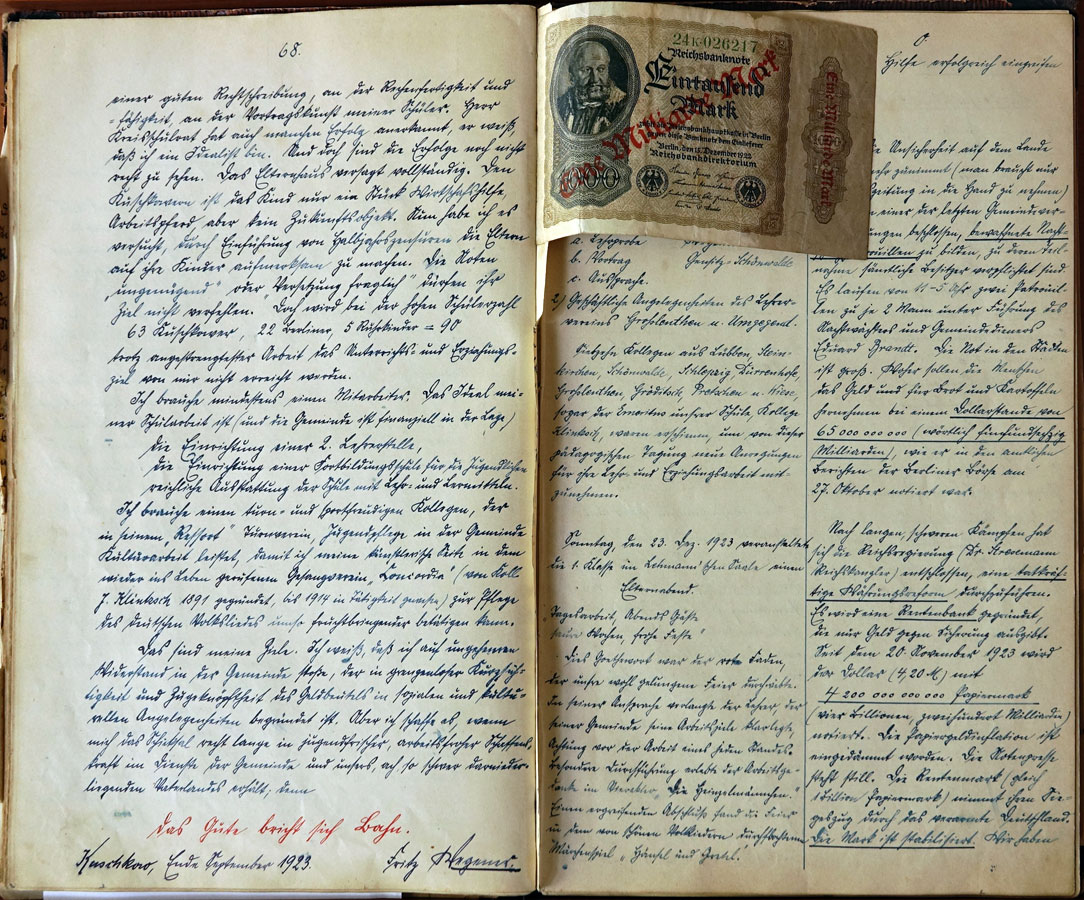 68.
einer guten Rechtschreibung, an der Rechenfertigkeit und
-fähigkeit, an der Vortragskunst meiner Schüler. Herr
Kreisschulrat hat auch manchen Erfolg anerkannt, er weiß,
daß ich ein Idealist bin. Und doch sind die Erfolge noch nicht
recht zu sehen. Das Elternhaus versagt vollständig. Den
Kuschkowern ist das Kind nur ein Stück Wirtschaftshilfe,
Arbeitspferd aber kein Zukunftsobjekt. Nun habe ich es
versucht, durch Einführung von Halbjahrszensuren die Eltern
auf ihre Kinder aufmerksam zu machen. Die Noten
„ungenügend" oder „Versetzung fraglich" dürfen ihr
Ziel nicht verfehlen. Doch wird bei der hohen Schülerzahl
63 Kuschkower, 22 Berliner, 5 Ruhrkinder = 90
trotz angestrengtester Arbeit das Unterrichts- und Erziehungs-
ziel von mir nicht erreicht werden.
Ich brauche mindestens einen Mitarbeiter. Das Ideal mei-
ner Schularbeit ist (und die Gemeinde ist finanziell in der Lage)
die Einrichtung einer 2. Lehrerstelle,
die Einrichtung einer Fortbildungsschule für die Jugendlichen
reichliche Ausstattung der Schule mit Lehr- und Lernmitteln.
Ich brauche einen turn- und sportfreudigen Kollegen, der
in seinem „Ressort" Turnverein, Jugendpflege in der Gemeinde
Kulturarbeit leistet, damit ich meine künstlerische Seite in dem
wieder ins Leben gerufenen Gesangverein „Concordia" (von Koll.
J. Klinkisch 1891 gegründet, bis 1914 in Tätigkeit gewesen) zur Pflege
des deutschen Volksliedes umso fruchtbringender betätigen kann.
Das sind meine Ziele. Ich weiß, daß ich auf ungeheuren
Widerstand in der Gemeinde stoße, der in grenzenloser Kurzsich-
tigkeit und Zugeknöpftheit des Geldbeutels in sozialen und kultu-
rellen Angelegenheiten begründet ist. Aber ich schaffe es, wenn
mich das Schicksal recht lange in jugendfrischer, arbeitsfroher Schaffens-
kraft im Dienste der Gemeinde und unsers, ach so schwer darnieder-
liegenden Vaterlandes erhält; denn
Das Gute bricht sich Bahn.
Kuschkow, Ende September 1923. Fritz Wegener
24K·026217
Reichsbanknote
Eintausend
Mark
Eine Milliarde Mark
Berlin, den 15. Dezember 1922
Reichsbankdirektorium
Eine Milliarde Mark
1000
a. Lehrprobe
b. Vortrag Gensitz-Schönwalde
c. Aussprache.
2) Geschäftliche Angelegenheiten des Lehrer-
vereins Groß-Leuthen u. Umgegend.
Kollegen aus Lübben, Stein-
kirchen, Schönwalde, Schlepzig, Dürrenhofe,
Großleuthen, Gröditsch, Pretschen u. Wiese,
sogar der Emeritus unsrer Schule, Kollege
Klinkisch, waren erschienen, um von dieser
pädagogischen Tagung neue Anregungen
für ihre Lehr- und Erziehungsarbeit mit-
zunehmen.
Sonntag, den 23. Dez. 1923 veranstaltete
die 1. Klasse im Lehmann'schen Saale einen
Elternabend.
„Tagesarbeit, Abends Gäste
saure Wochen, frohe Feste"
Dies Goethewort war der rote Faden,
der unsre wohl gelungene Feier durchwebte.
In seiner Ansprache verlangte der Lehrer, der
seiner Gemeinde seine Arbeitsziele klarlegte,
Achtung vor der Arbeit eines jeden Standes.
Besondere Durchführung erlebte der Arbeitsge-
danke im „Die Heinzelmännchen."
Einen ergreifenden Abschluß fand die Feier
in dem von schönen Volksliedern durchflochtenen
Märchenspiel „Hänsel und Gretel."
Hilfe erfolgreich eingreifen
die Unsicherheit auf dem Lande
mehr zunimmt (man braucht nur
Zeitung in die Hand zu nehmen)
in einer der letzten Gemeindever-
ungen beschlossen, bewaffnete Nacht-
rouillen zu bilden, zu deren Teil-
nahme sämtliche Besitzer verpflichtet sind.
Es laufen von 11–5 Uhr zwei Patrouil-
len zu je 2 Mann unter Führung des
Nachtwächters und Gemeindedieners
Eduard Brandt. Die Not in den Städten
ist groß. Woher sollen die Menschen
das Geld und für Brot und Kartoffeln
hernehmen bei einem Dollarstande von
65 000 000 000 (wörtlich fünfundsechzig
Milliarden), wie er in den amtlichen
Berichten der Berliner Börse am
27. Oktober notiert war.
Nach langen, schweren Kämpfen hat
sich die Reichsregierung (Dr. Stresemann
Reichskanzler) entschlossen, eine tatkräf-
tige Währungsreform durchzuführen.
Es wird eine Rentenbank gegründet,
die nur Geld gegen Sicherung ausgibt.
Seit dem 20. November 1923 wird
der Dollar (4,20 M) mit
4 200 000 000 000 Papiermark
(vier Billionen, zweihundert Milliarden)
notiert. Die Papiergeldinflation ist
eingedämmt worden. Die Notenpresse
steht still. Die Rentenmark (gleich
1 Billion Papiermark) nimmt ihren Sie-
geszug durch das verarmte Deutschland.
Die Mark ist stabilisiert. Wir haben